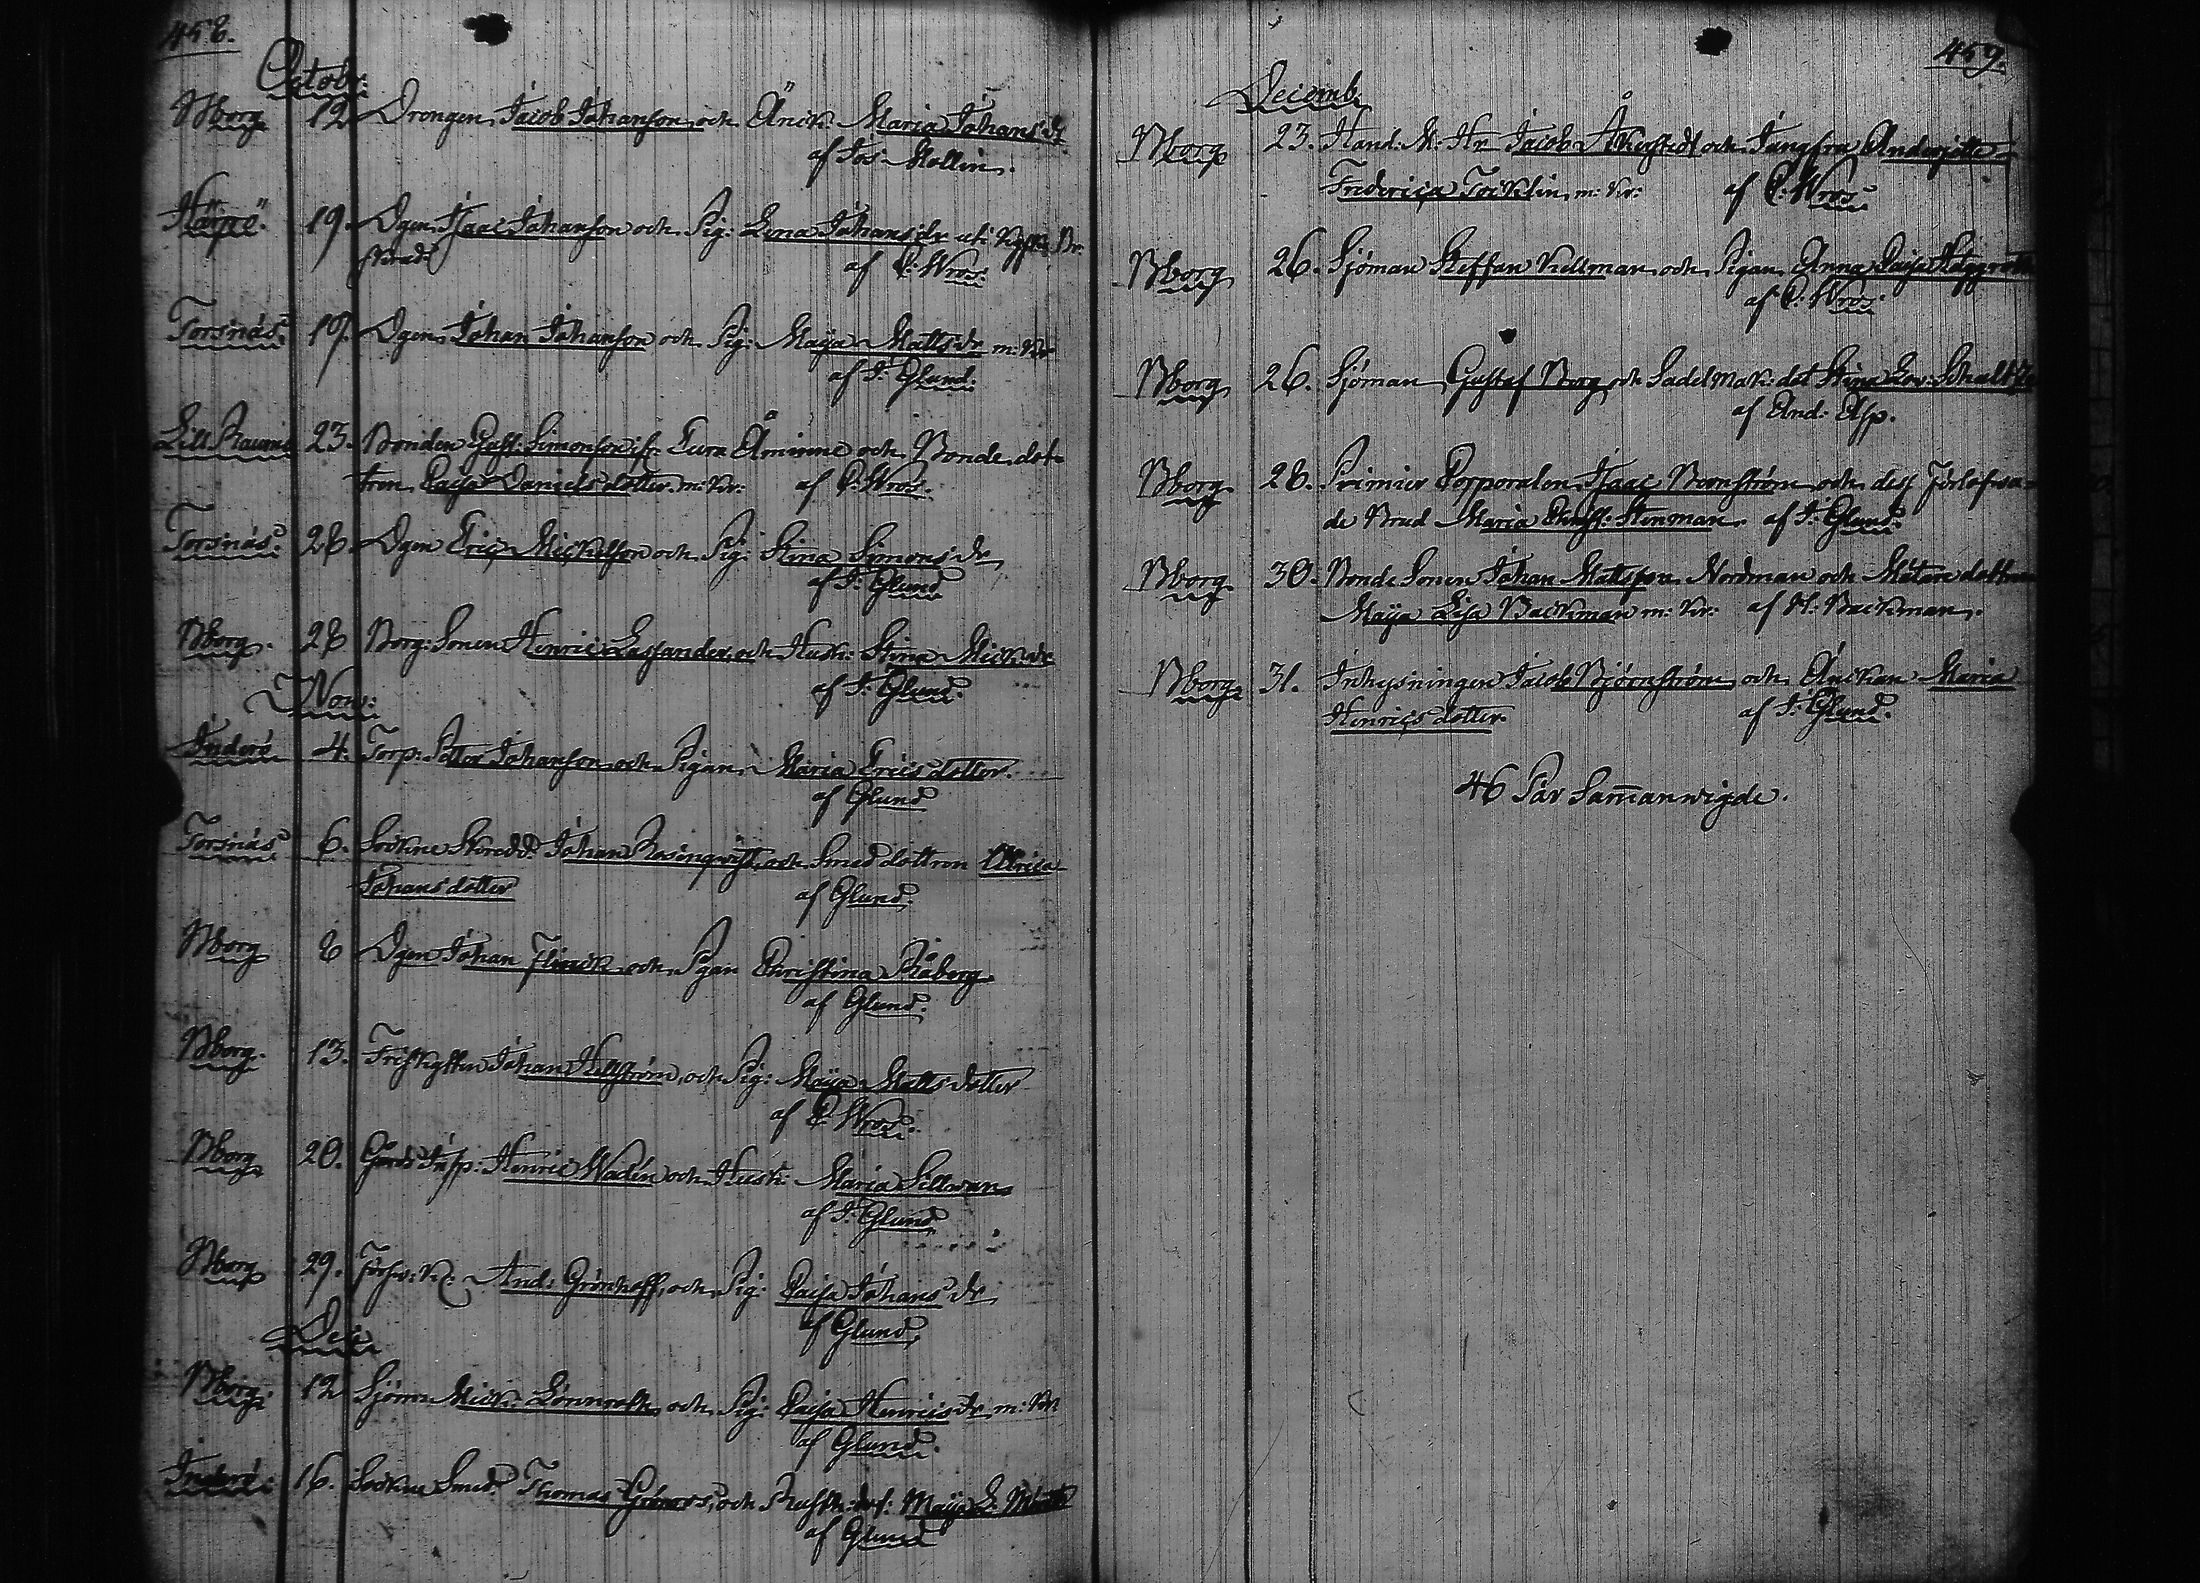 458.
Octobr:
Bborg 12. Drengen Jacob Johanson och Änck: Maria Johans dr
af Jos: Mollin.
19. Dgen Isaac Johanson och Pig: Lena Johans dr uti
af C: Wros:
Torsnäs. 19. Dgen Johan Johanson och Pig: Maija Matts dr m: Kr
af J: Glund.
Lill Raumo 23. Bonden Gust: Simonson ifr. Eura Åminne och Bonde dot-
tren Caisa Daniels dotter m: Kr: af C: Wros:
Torsnäs. 28. Dgen Eric Mickelson och Pig: Stina Simons dr
af J: Glund
Bborg. 28 Borg: Sonen Henric Lassander och Hush: Stina Mick: dr
af J: Glund.
Nov:
Inderö 4. Torp: Petter Johanson och Pigan Maria Erics dotter.
af Glund
Torsnäs 6. Sockne Skredd: Johan Rosenqvist och Smed dottren Ulrica
Johans dotter af Glund.
Bborg 8 Dgen Johan Flinck och Pgan Christina Råberg
af Glund.
Bborg. 13. Johan Hellström, och Pig: Maija Matts dotter
af C: Wros:
Bborg 20. Gårds Insp: Henric Wadén och Hush: Maria Sillman
af J: Glund
Bborg 29. And: Grönhoff, och Pig: Caisa Johans dr
af Glund
Dec:
Bborg. 12 Sjöm: Mich: Lönnroth och Pig: Caisa Henrics dr m: Kr
af Glund.
Inderö. 16. Sockne Smed: Thomas och Maija
af Glund
459.
Decemb.
Bborg 23. Hand: M: Hr Jacob Åkerstedt och Jungfru
Fredrica m: Kr: af C: Wros:
Bborg 26. Sjöman Steffan Kellman och Pigan Anna Caisa Häggroth
af C: Wros:
Bborg 26. Sjöman Gustaf Borg och Sadelmak: dot Stina
af And: Asp.
Bborg. 28. Primier Corporalen Isaac Bornström och dess förlofwa-
de Brud Maria Christ: Stenman. af J: Glund.
Bborg. 30. Bonde Sonen Johan Mattsson Nordman och Mätare dottren
Maija Lisa Backman m: Kr: af H: Backman.
Bborg. 31. Inhysningen Jacob Björnström och Änckan Maria
Henrics dotter. af J: Glund.
46 Par Sammanwigde.